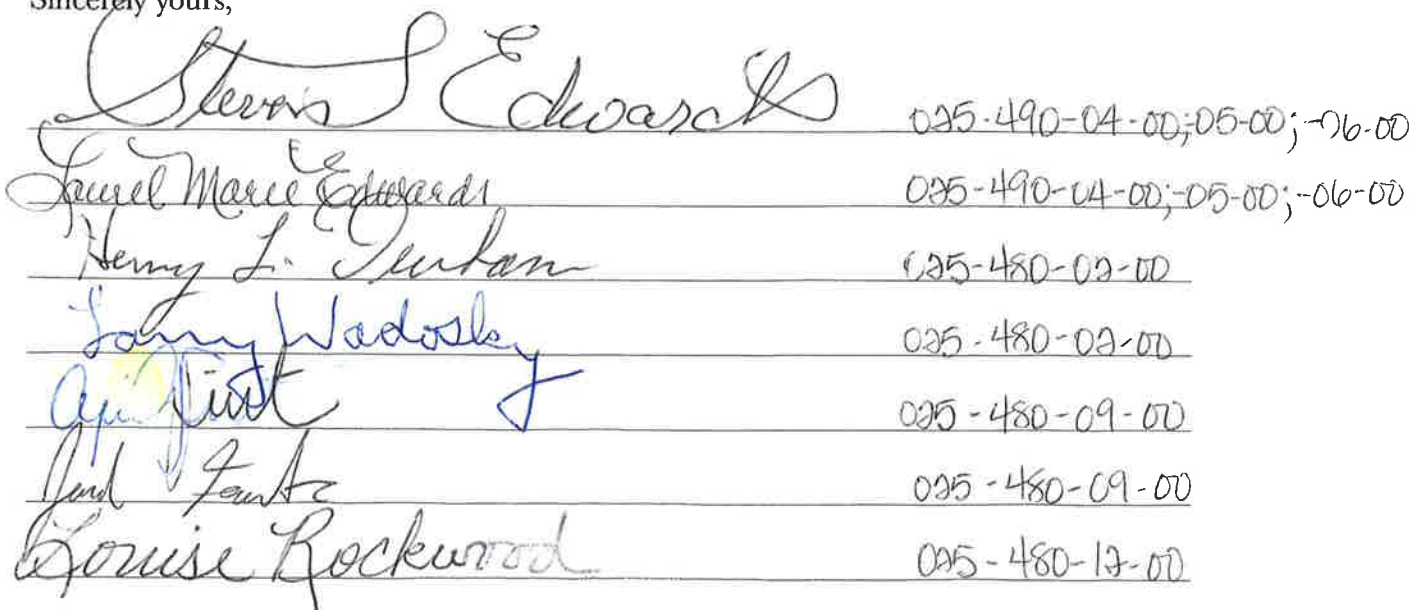 Sincerely yours,
Steven S Edwards 025-490-04-00;05-00;-06-00
Laurel Marie Edwards 025-490-04-00;-05-00;-06-00
Henry L. 025-480-02-00
Larry Wadosky 025-480-02-00
025-480-09-00
025-480-09-00
Louise Rockwood 025-480-12-00